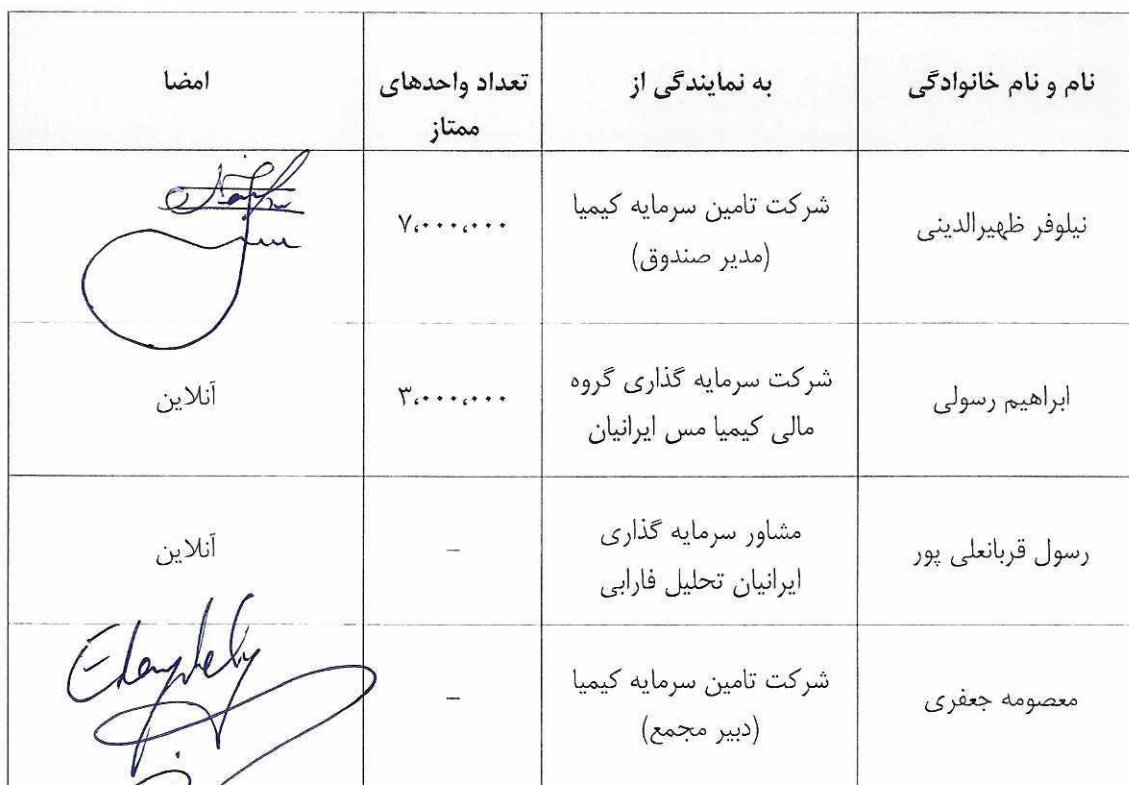 نام و نام خانوادگی
به نمایندگی از
تعداد واحدهای
ممتاز
امضا
نیلوفر ظهیرالدینی
شرکت تامین سرمایه کیمیا
(مدیر صندوق)
۷،۰۰۰،۰۰۰
ابراهیم رسولی
شرکت سرمایه گذاری گروه
مالی کیمیا مس ایرانیان
۳،۰۰۰،۰۰۰
آنلاین
رسول قربانعلی پور
مشاور سرمایه گذاری
ایرانیان تحلیل فارابی
–
آنلاین
معصومه جعفری
شرکت تامین سرمایه کیمیا
(دبیر مجمع)
–